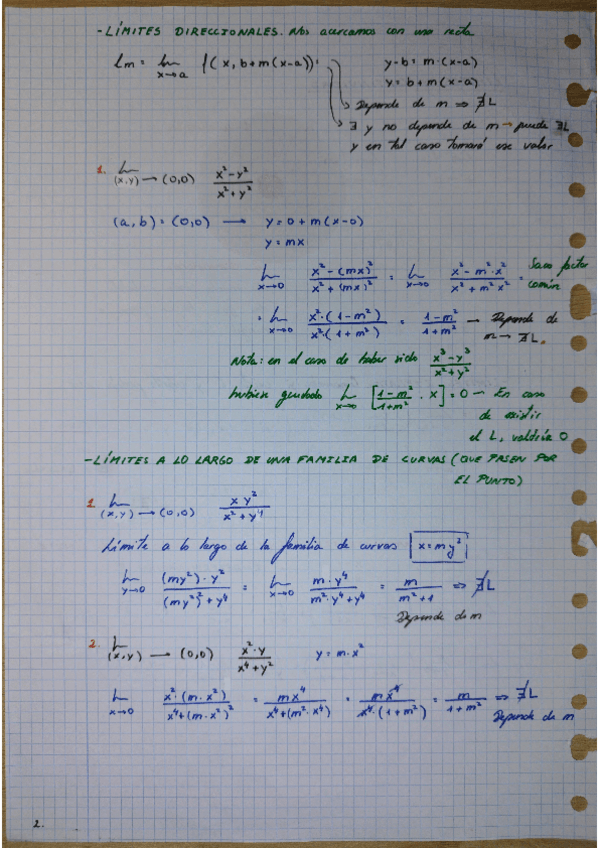 - LÍMITES DIRECCIONALES. Nos acercamos con una recta
Lm = lim x→a f(x, b+m(x-a)) y-b = m·(x-a)
y = b+m(x-a)
Depende de m ⇒ ∄L
∃ y no depende de m → puede ∄L
y en tal caso tomará ese valor
1. lim (x,y)→(0,0) x²-y² / x²+y²
(a,b) = (0,0) → y = 0+m(x-0)
y = mx
lim x→0 x²-(mx)² / x²+(mx)² = lim x→0 x²-m²·x² / x²+m²x² = Saco factor común
= lim x→0 x²·(1-m²) / x²·(1+m²) = 1-m² / 1+m² → Depende de
m → ∄L.
Nota: en el caso de haber sido x³-y³ / x²+y²
hubiese quedado lim x→0 [1-m² / 1+m² · x] = 0 — En caso
de existir
el L, valdría 0
- LÍMITES A LO LARGO DE UNA FAMILIA DE CURVAS (QUE PASEN POR
EL PUNTO)
1. lim (x,y)→(0,0) xy² / x²+y⁴
Límite a lo largo de la familia de curvas x=my²
lim y→0 (my²)·y² / (my²)²+y⁴ = lim x→0 m·y⁴ / m²·y⁴+y⁴ = m / m²+1 ⇒ ∄L
Depende de m
2. lim (x,y)→(0,0) x²·y / x⁴+y² y = m·x²
lim x→0 x²·(m·x²) / x⁴+(m·x²)² = mx⁴ / x⁴+(m²·x⁴) = mx⁴ / x⁴·(1+m²) = m / 1+m² ⇒ ∄L
Depende de m
2.